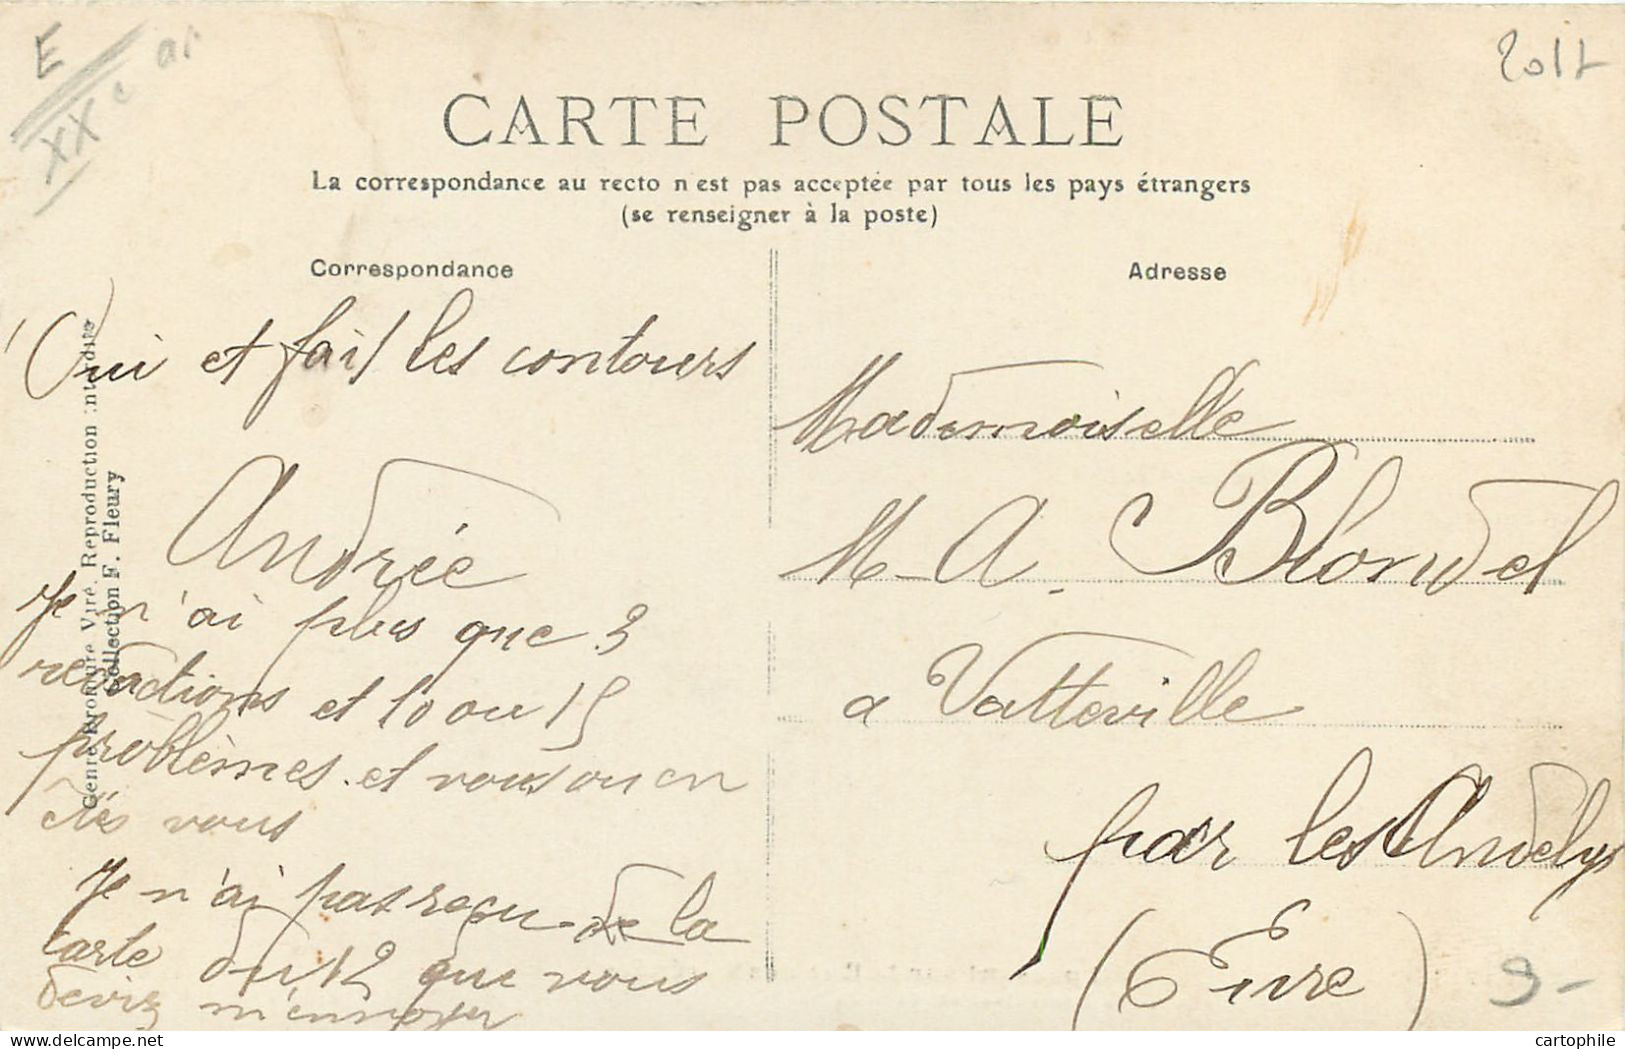 E
XXe ar
2017
CARTE POSTALE
La correspondance au recto n'est pas acceptée par tous les pays étrangers
(se renseigner à la poste)
Correspondance
Adresse
Oui et fait les contours
Andrée
Je n'ai plus que 3
rédactions et 10 ou 15
problèmes. et vous ou en
êtes vous
Je n'ai pas reçu de la
carte du 12 que vous
deviez m'envoyer
Mademoiselle
M-A. Blondel
a Vatteville
par les Andelys
(Eure)
9-
Reproduction interdite
Collection F. Fleury
cartophile.com